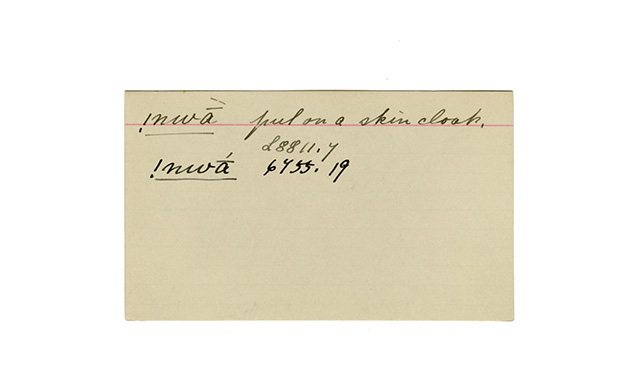 !nwā̀ put on a skin cloak.
L8811.7
!nwā́ 6455.19